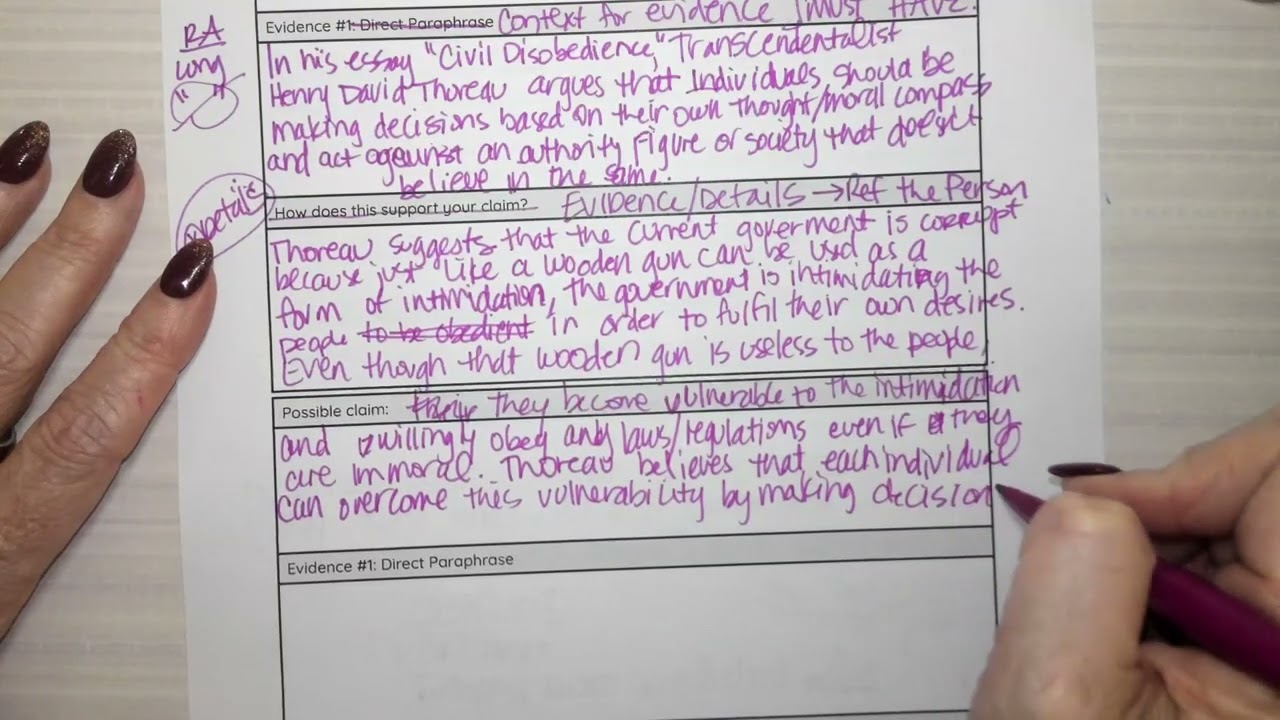 Evidence #1: Direct Paraphrase Context for evidence MUST HAVE!
RA
Long
" "
In his essay "Civil Disobedience," Transcendentalist
Henry David Thoreau argues that individuals should be
making decisions based on their own thought/moral compass
and act ageunist an authority figure or society that doesn't
believe in the same.
Details
How does this support your claim? EVIDENCE/DETAILS → Ref the Person
Thoreau suggests that the current goverment is corrupt
because just like a wooden gun can be used as a
form of intimidation, the government is intimidating the
people to be obedient in order to fulfil their own desires.
Even though that wooden gun is useless to the people,
Possible claim: they become vulnerable to the intimidation
and willingly obey any laws/regulations even if they
are immoral. Thoreau believes that each individual
can overcome this vulnerability by making decision
Evidence #1: Direct Paraphrase